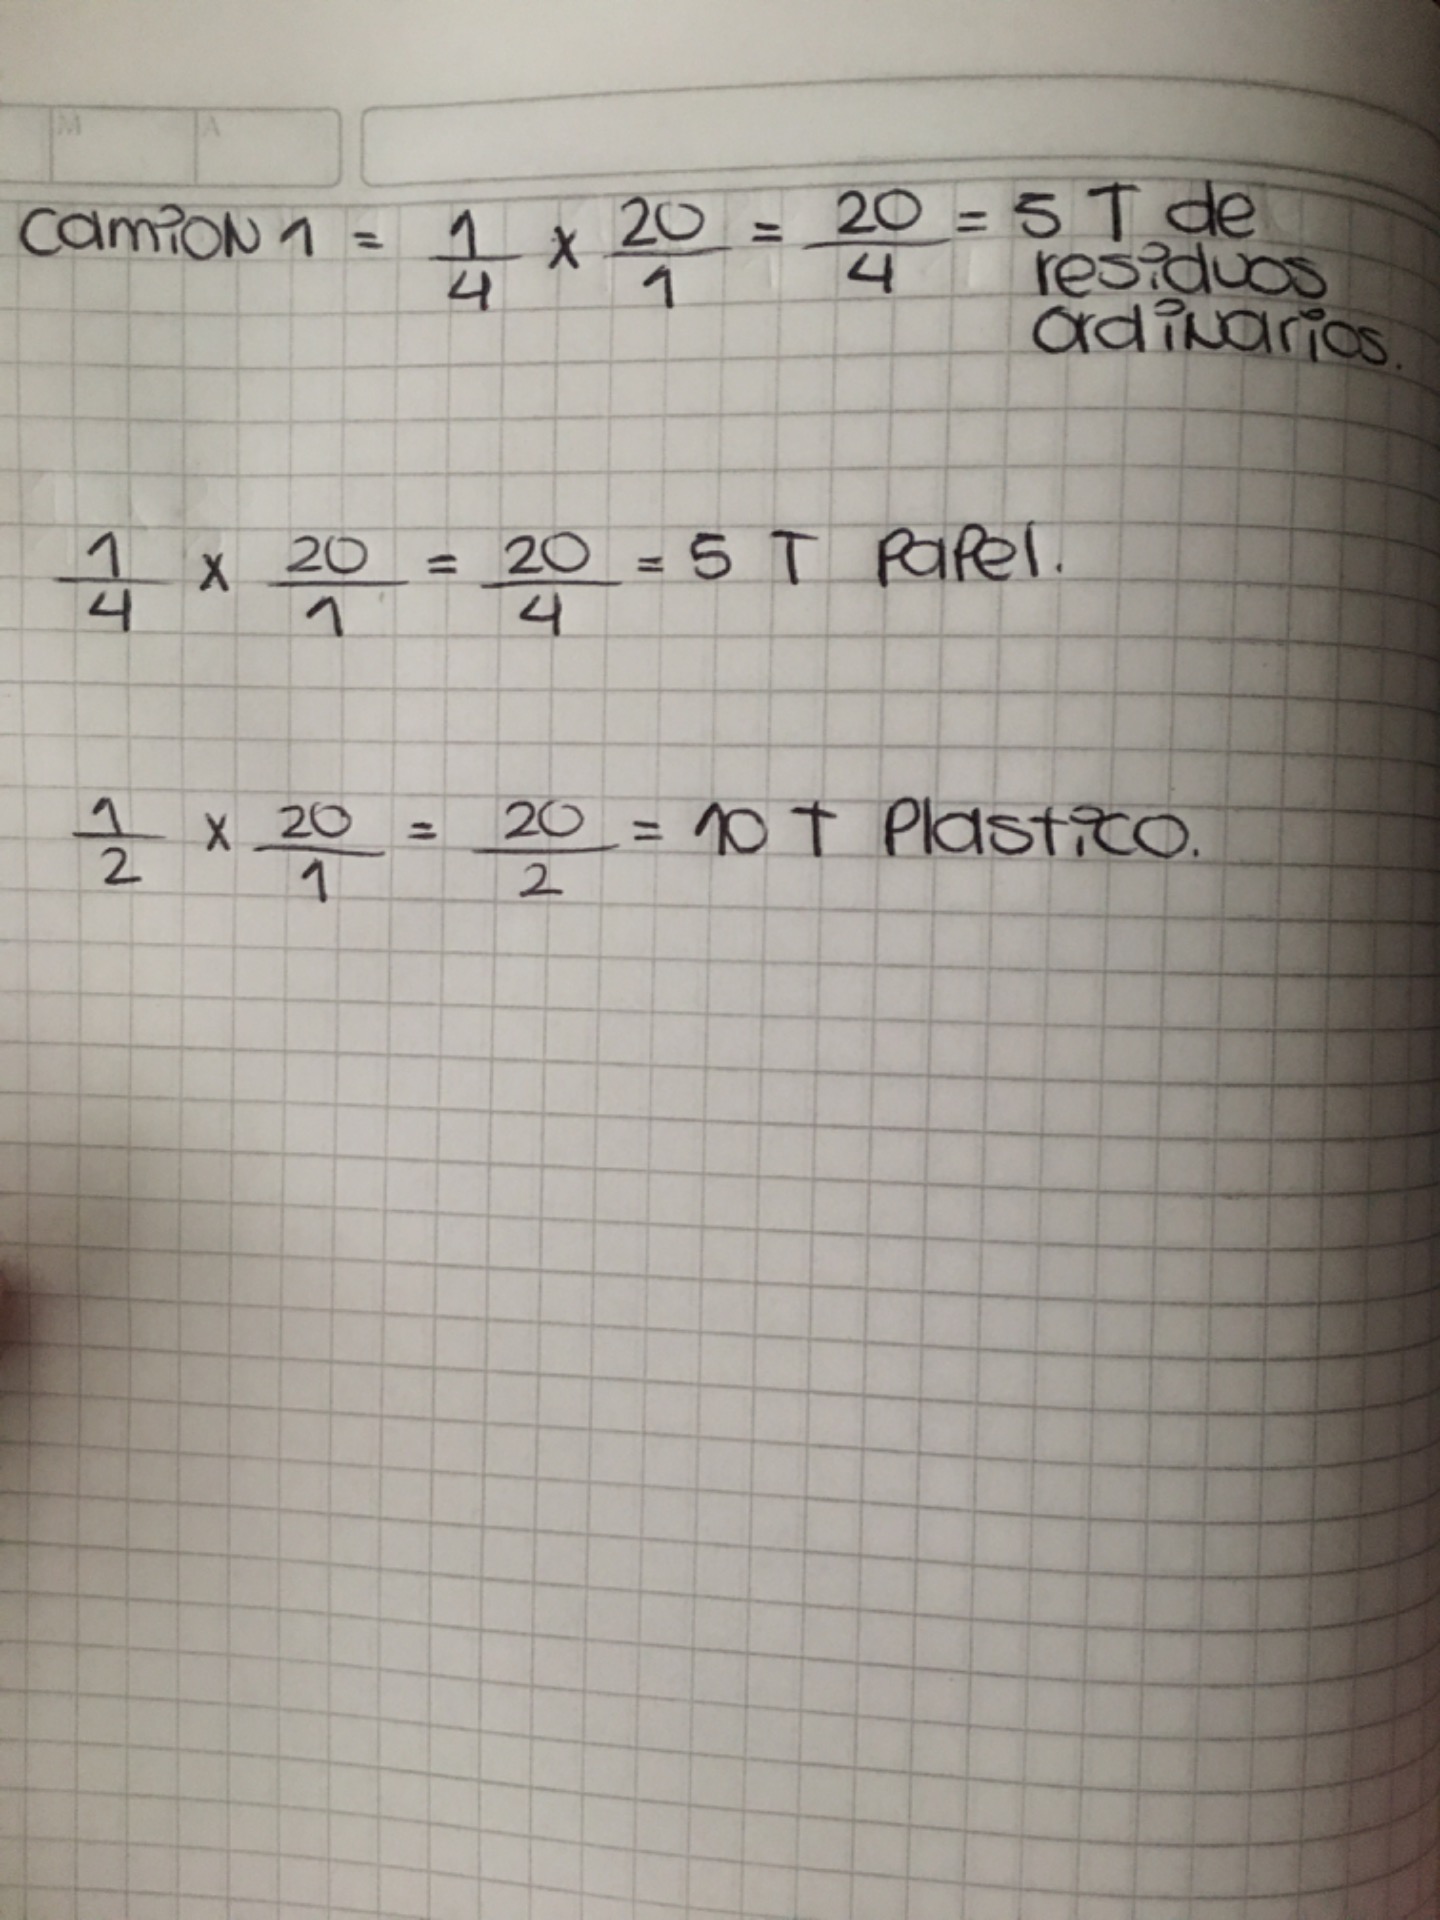 M A
Camion 1 = 1/4 x 20/1 = 20/4 = 5 T de
residuos
ordinarios.
1/4 x 20/1 = 20/4 = 5 T Papel.
1/2 x 20/1 = 20/2 = 10 T Plastico.